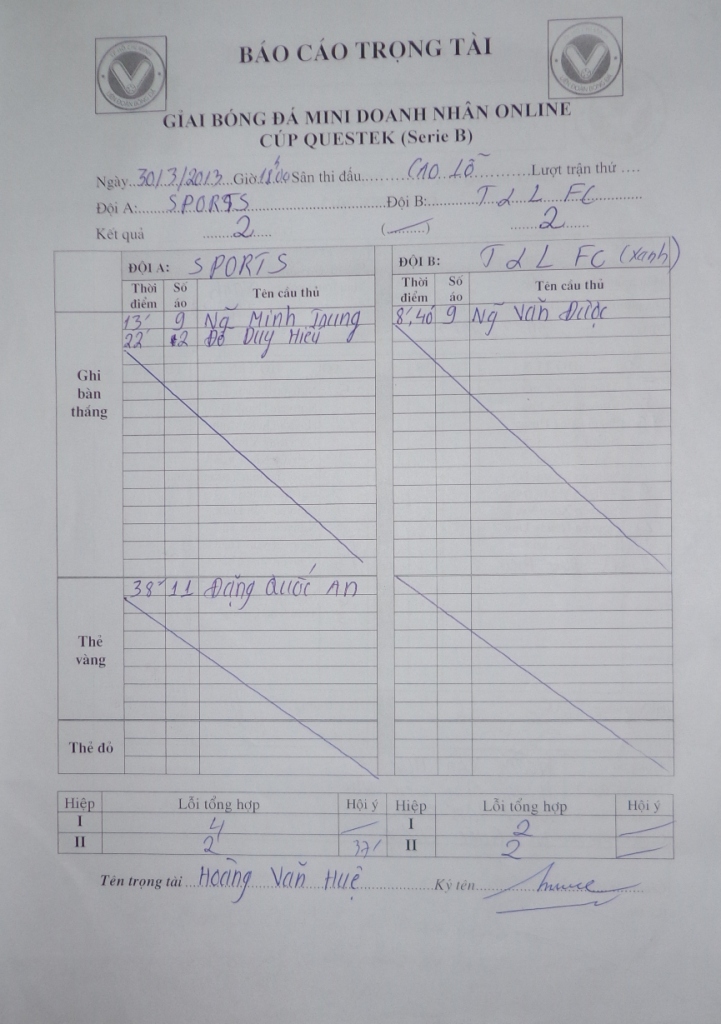 BÁO CÁO TRỌNG TÀI
GIẢI BÓNG ĐÁ MINI DOANH NHÂN ONLINE
CÚP QUESTEK (Serie B)
Ngày 30/3/2013 Giờ Sân thi đấu C10 Lỗ Lượt trận thứ ....
Đội A: SPORTS Đội B: T & L FC
Kết quả 2 ( — ) 2
ĐỘI A: SPORTS ĐỘI B: T & L FC (xanh)
Thời điểm Số áo Tên cầu thủ Thời điểm Số áo Tên cầu thủ
Ghi bàn thắng
13' 9 Ng Minh Trung 8', 40' 9 Ng Văn Được
22' 2 Đỗ Duy Hiếu
Thẻ vàng
38' 11 Đặng Quốc AN
Thẻ đỏ
Hiệp Lỗi tổng hợp Hội ý Hiệp Lỗi tổng hợp Hội ý
I 4 — I 2 —
II 2 37' II 2 —
Tên trọng tài Hoàng Văn Huệ Ký tên